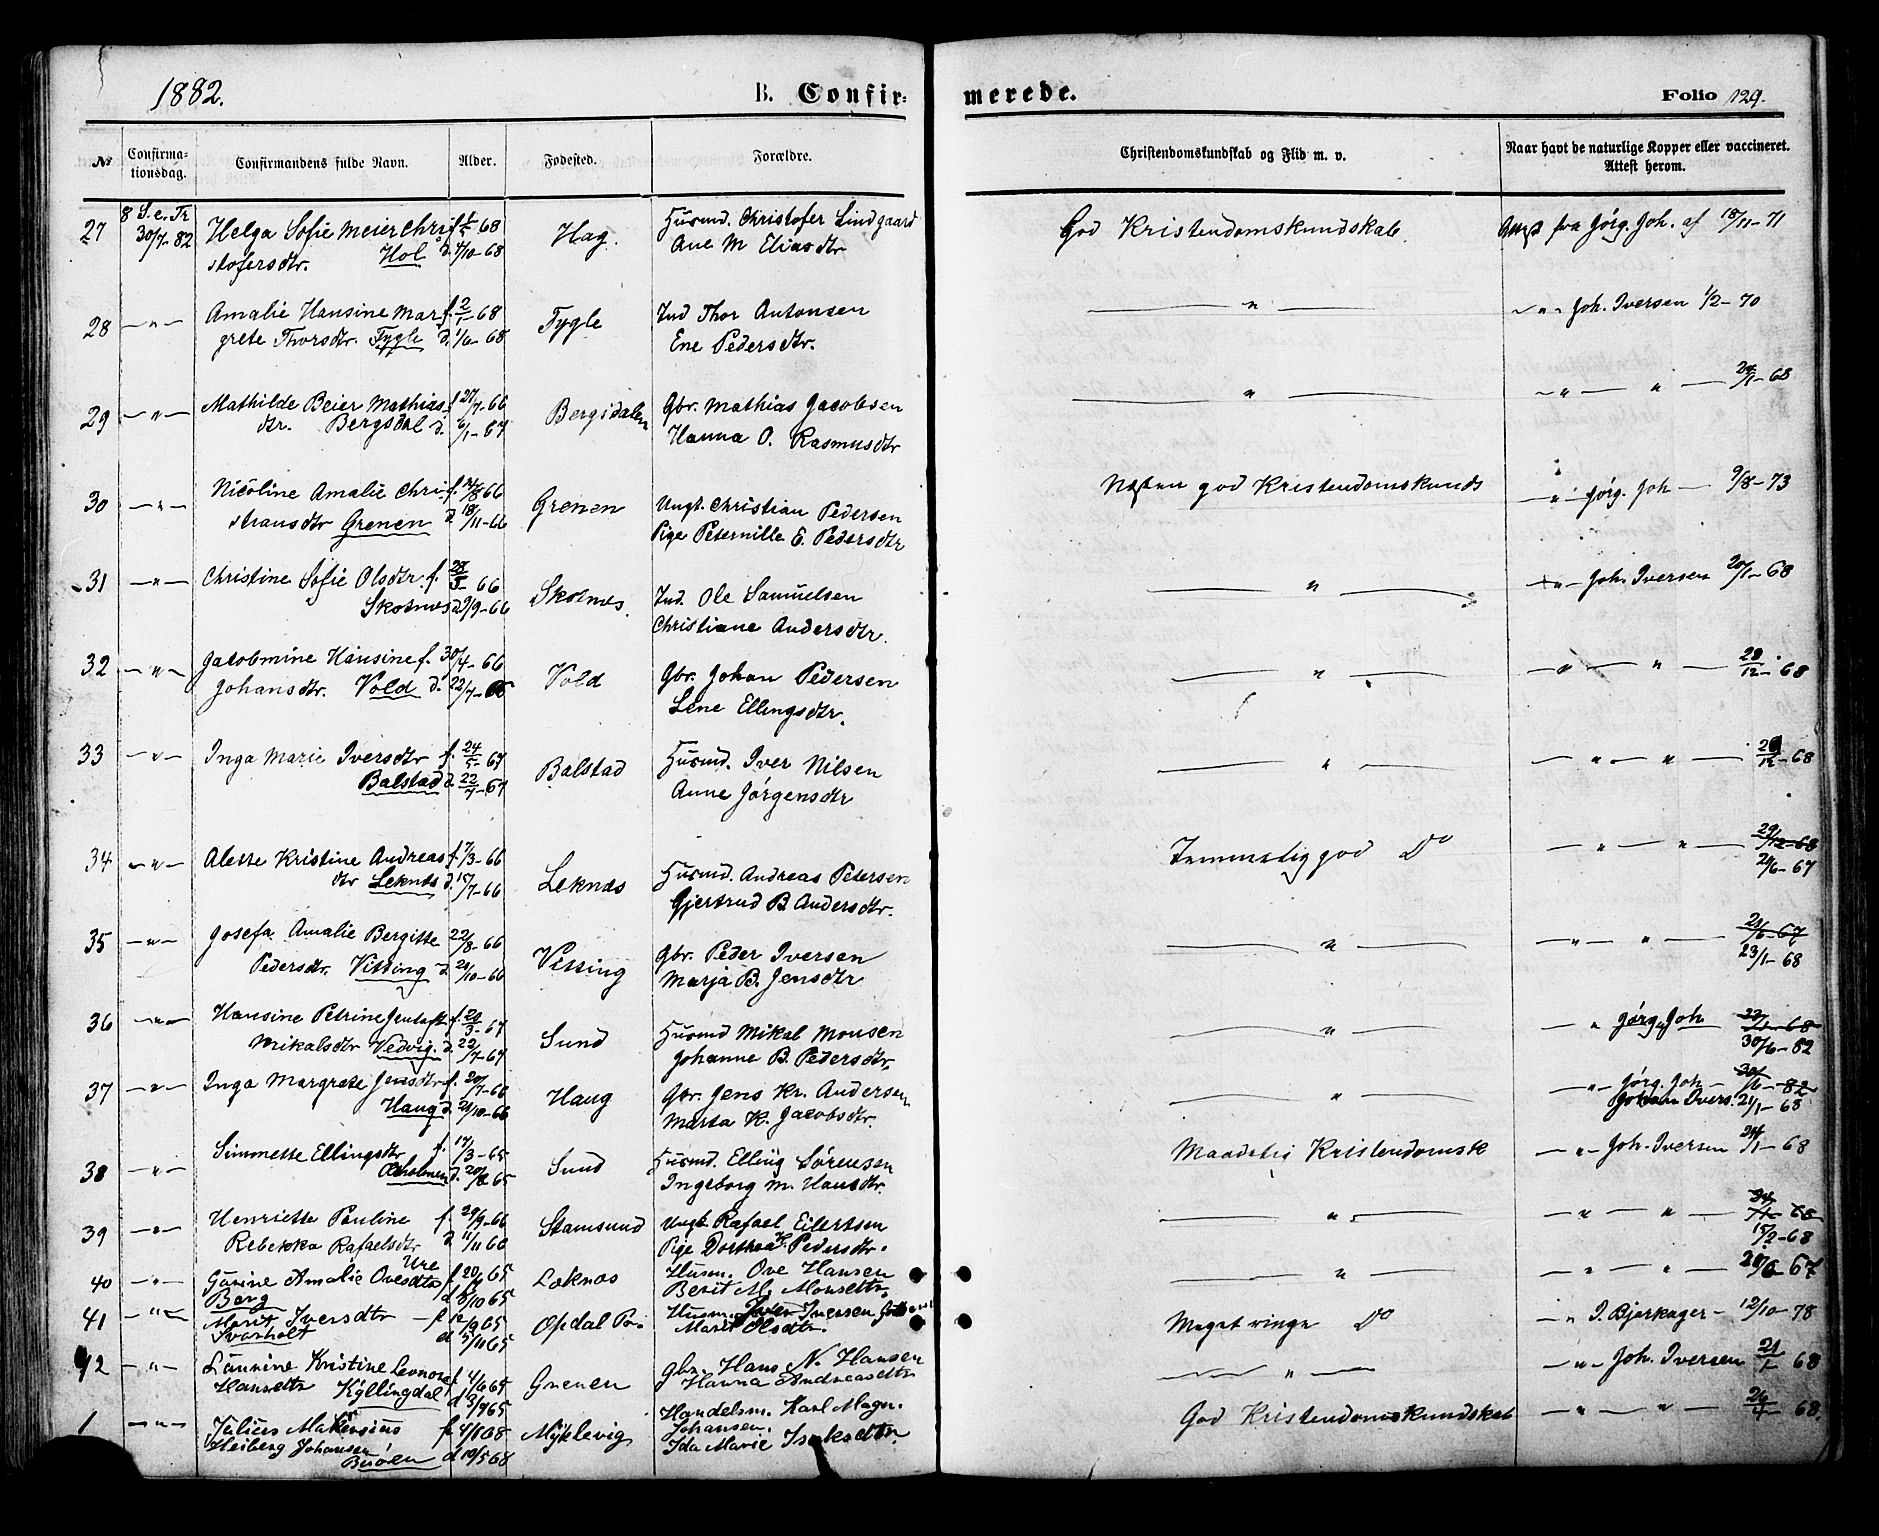 1882.
B. Confir-
merede.
Folio 129.
№
Confirmationsdag.
Confirmandens fulde Navn.
Alder.
Fødested.
Forældre.
Christendomskundskab og Flid m. v.
Naar havt de naturlige Kopper eller vaccineret. Attest herom.
27 8 S. e. Tr 30/7-82 Helga Sofie Meier Christofersdtr. Hol d. 4/10-68 Hag. Husmd. Christofer Lindgaard
Ane M Eliasdtr
God Kristendomskundskab. fra Jørg. Joh. af 18/11-71
28 —"— Amalie Hansine Margrete Thorsdtr. Tygle f. 2/1-68 d. 1/6-68 Tygle Ind Thor Antonsen
Ene Pedersdtr.
—"— —"— Joh. Iversen 1/2-70
29 —"— Mathilde Beier Mathiasdtr. Bergsdal f. 27/7-66 d. 6/1-67 Bergsdalen Gbr. Mathias Jacobsen
Hanna O. Rasmusdtr
—"— —"— " —68
30 —"— Nicoline Amalie Christiansdtr Grenen d. 18/11-66 Grenen Ungk. Christian Pedersen
Pige Peternille E. Pedersdtr
Næsten god Kristendomskunds —"— Jørg. Joh — 9/8-73
31 —"— Christine Sofie Olsdtr. Skotnes f. 28/5-66 d. 29/9-66 Skotnes. Ind. Ole Samuelsen
Christiane Andersdtr.
—"— —"— Joh. Iversen 20/1-68
32 —"— Jacobmine Hansine Johansdtr. Vold f. 30/4-66 d. 22/7-66 Vold Gbr. Johan Pedersen
Lene Ellingsdtr.
—"— —"— " — 28/12-68
33 —"— Inga Marie Iversdtr Balstad f. 24/5-67 d. 22/7-67 Balstad Husmd. Iver Nilsen
Anne Jørgensdtr
—"— —"— " — /12-68
34 —"— Alette Kristine Andreasdtr Leknes f. 7/3-66 d. 15/7-66 Leknes Husmd. Andreas Petersen
Gjertrud B. Andersdtr.
Temmelig god Do —"— " — 29/12-68
21/6-67
35 —"— Josefa Amalie Bergitte Pedersdtr. Vitting 22/8-66 d. 21/10-66 Vitting Gbr. Peder Iversen
Marja B. Jensdtr
—"— —"— " — 21/6-67
23/1-68
36 —"— Hansine Petrine Jentoft Mikalsdtr Vedvig. f. 20/3-67 d. 22/7-67 Sund Husmd Mikal Monsen
Johanne B. Pedersdtr.
—"— — " Jørg. Joh
30/6-82
37 —"— Inga Margrete Jensdtr Haug f. 20/7-66 d. 21/10-66 Haug Gbr. Jens Kr. Andersen
Marta K. Jacobsdtr.
—"— —"— Jørg. Joh — 30/6-82
Johan Ivers. 21/1-68
38 —"— Simmette Ellingsdtr f. 17/3-65 d. 20/8-65 Sund Husmd. Elling Sørensen
Ingeborg M. Hansdtr.
Maadelig Kristendomsk —"— Joh. Iversen 24/1-68
39 —"— Henriette Pauline Rebekka Rafaelsdtr Ure f. 29/9-66 d. 11/11 66 Stamsund Ungk. Rafael Eilertsen
Pige Dorthea K. Pedersdtr.
—"— —"— " — 15/2-68
40 —"— Amalie Ovesdtr Berg d 8/10 65 Leknæs Husm. Ove Hansen
Berit M. Monsdtr.
—"— —"— " — -67
41 —"— Marit Iversdtr Ivarholt Opdal Husm. Iversen
Marit Olsdtr.
Meget ringe Do —"— I. Bjerkager — 12/10-78
42 —"— Laurine Kristine Leonora Hansdtr Kyllingdal f 4/6 65 Grenen Gbr. Hans N. Hansen
Hanna Andreasdtr
—"— —"— Joh. Iversen 21/1 68
1 —"— Julius Makensius Heiberg Johansen Buøen d 10/5 68 Myklevig Handelsm. Karl Magn. Johansen.
Ida Marie Isaksdtr.
God Kristendomskundskab —"— " — 26/4 68